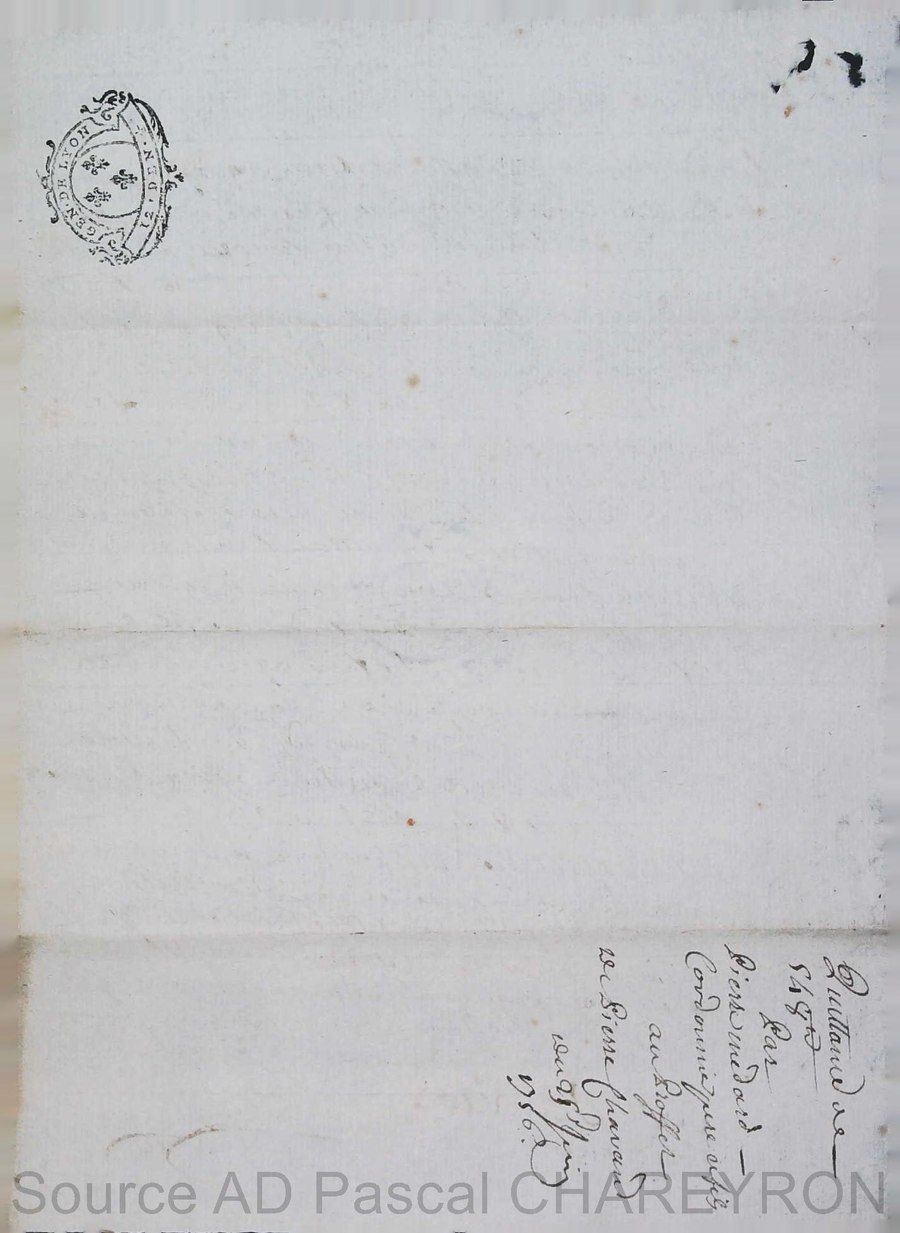 GEN. DE LYON
12. DEN.
Quittance de
Par
Pierre medard
Cordonnie pere et fils
au Proffit
de Pierre Chavand
du 25
Source AD Pascal CHAREYRON